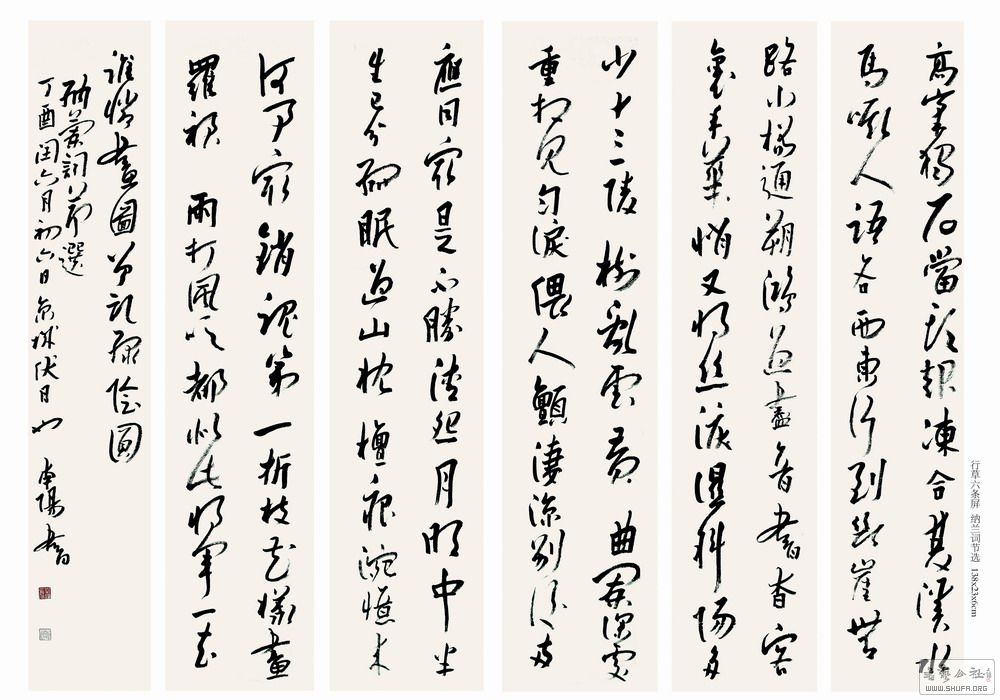 高峯獨石當頭起凍合雙溪水
馬嘶人語各西東行到斷崖無
路小橋通朔鴻過盡音書杳客
裏年華悄又將絲淚濕斜陽多
少十三陵樹亂雲黃 曲闌深處
重相見勻淚偎人顫淒涼別後兩
應同最是不勝清怨月明中 半
生已分孤眠過山枕檀痕涴憶來
何事最銷魂第一折枝花樣畫
羅裙 雨打風吹都似此將軍一去
誰憐畫圖曾記綠陰圓
納蘭詞節選
丁酉閏六月初六日京城伏日也 南陽書
行草六条屏 纳兰词节选 138x23x6cm
WWW.SHUFA.ORG